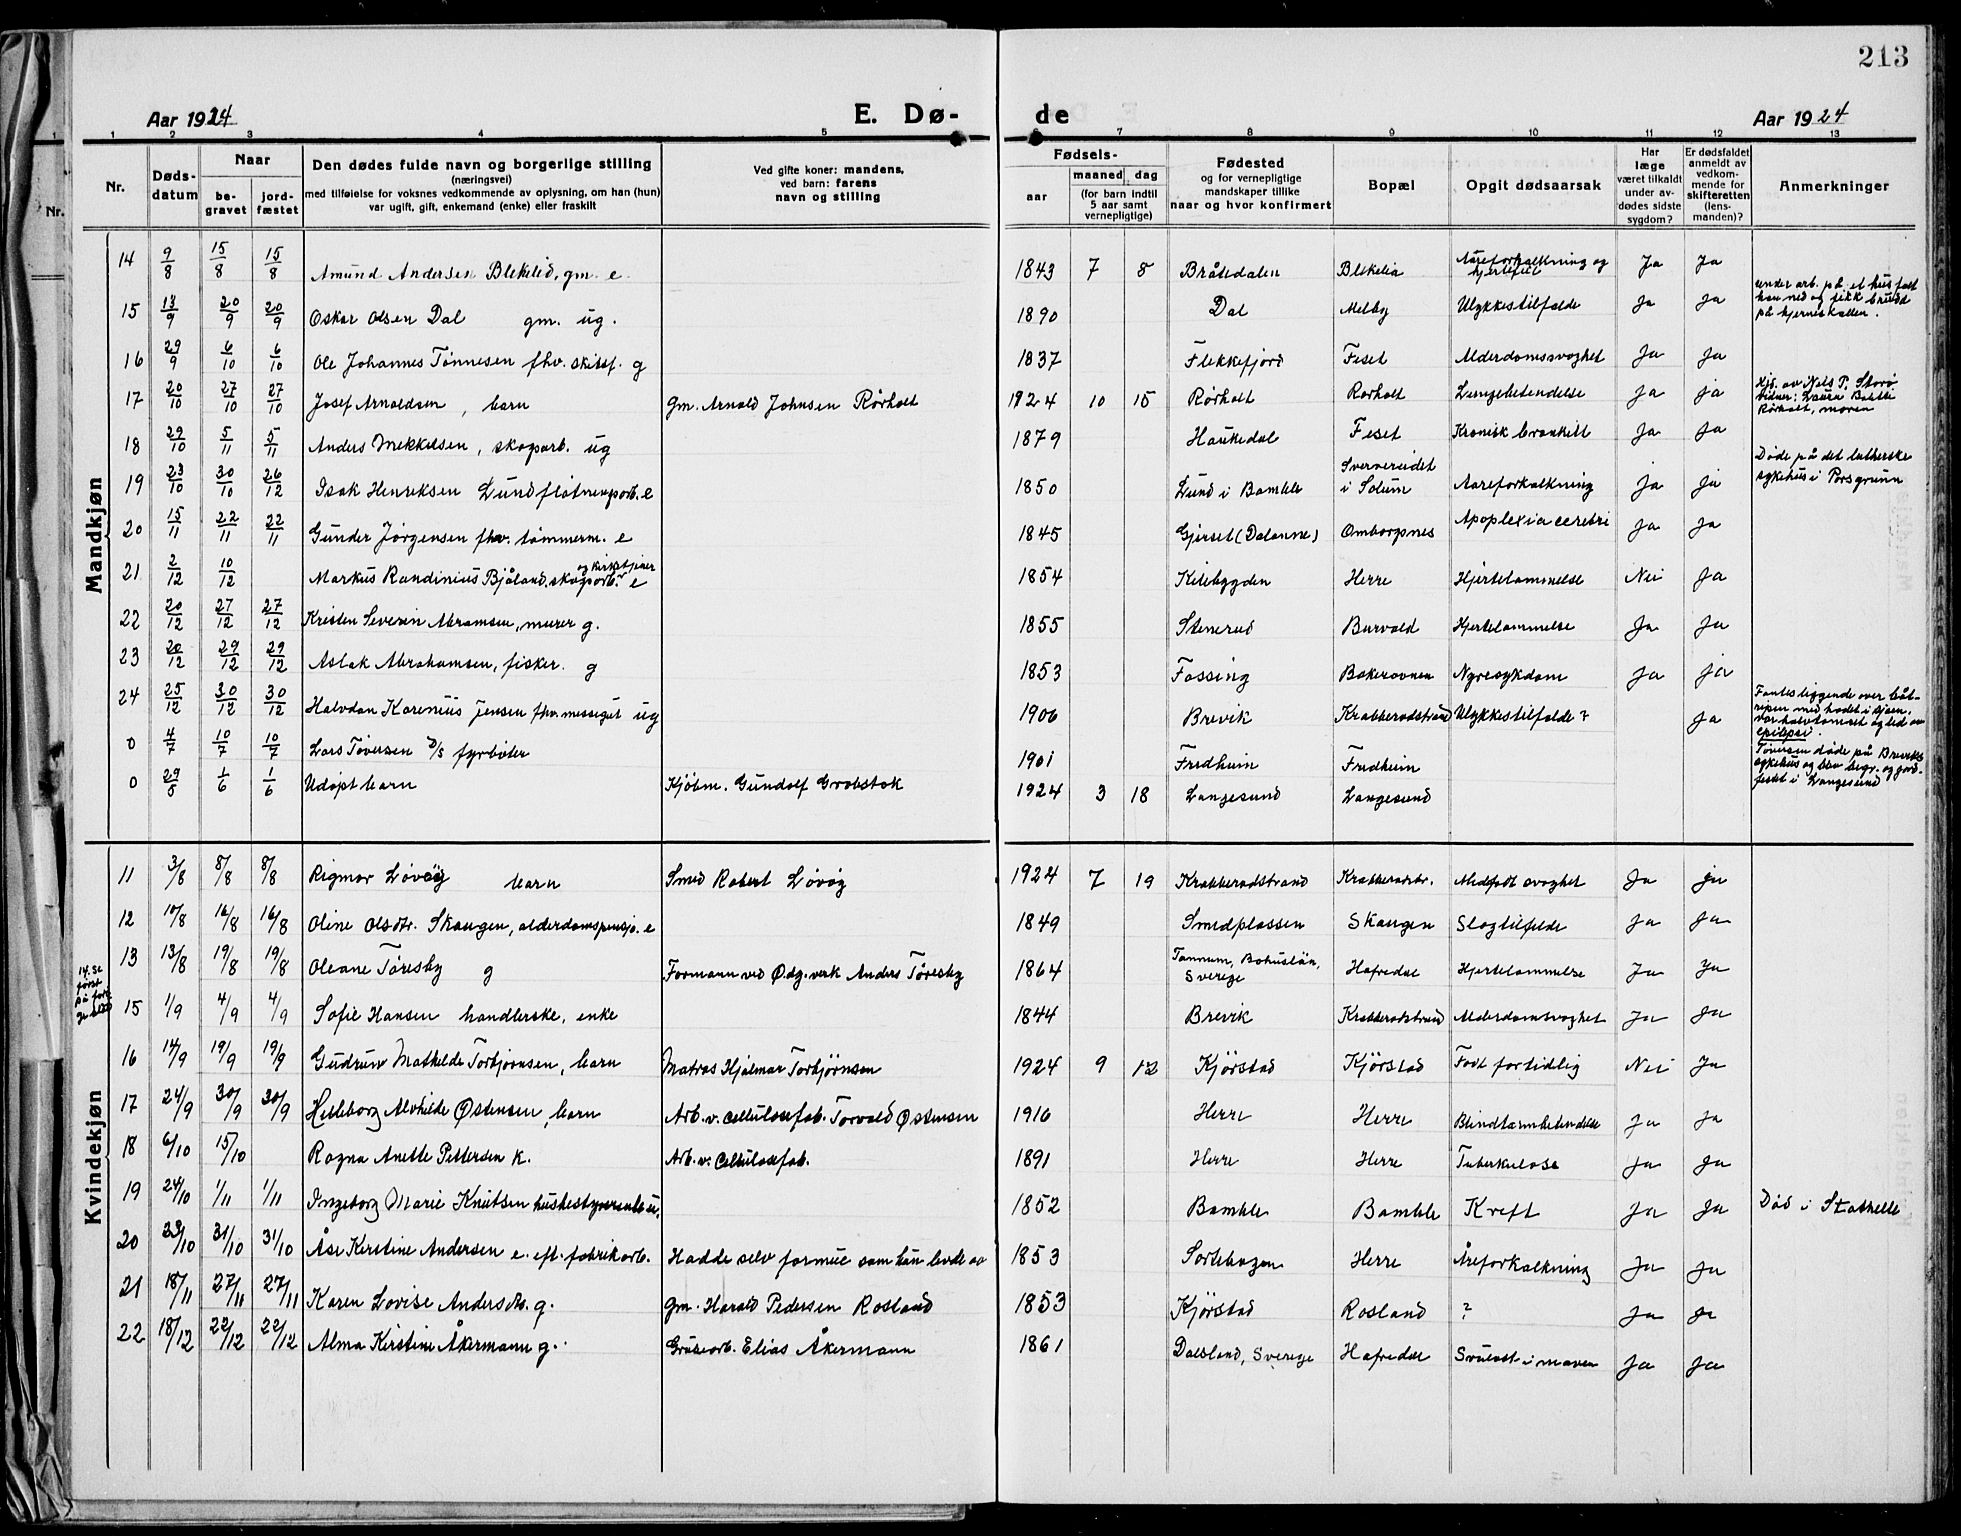 213
Aar 1924
E. Dø-
de
Aar 1924
1 2 3 4 5 7 8 9 10 11 12 13
Nr.
Døds-
datum
Naar
be-
gravet
jord-
fæstet
Den dødes fulde navn og borgerlige stilling
(næringsvei)
med tilføielse for voksnes vedkommende av oplysning, om han (hun)
var ugift, gift, enkemand (enke) eller fraskilt
Ved gifte koner: mandens,
ved barn: farens
navn og stilling
Fødsels-
aar
maaned dag
(for barn indtil
5 aar samt
vernepligtige)
Fødested
og for vernepligtige
mandskaper tillike
naar og hvor konfirmert
Bopæl
Opgit dødsaarsak
Har
læge
været tilkaldt
under av-
dødes sidste
sygdom?
Er dødsfaldet
anmeldt av
vedkom-
mende for
skifteretten
(lens-
manden)?
Anmerkninger
Mandkjøn
14 9/8 15/8 15/8 Amund Andersen Blekelid, gm. e 1843 7 8 Bråtedalen Blekelia Aareforkalkning og hjertefeil Ja Ja
15 13/9 20/9 20/9 Oskar Olsen Dal gm. ug. 1890 Dal Melby Ulykkestilfælde Ja Ja under arb. på et hus falt han ned og fikk brudd på hjerneskallen.
16 29/9 6/10 6/10 Ole Johannes Tønnesen fhv. skibsf. g 1837 Flekkefjord Feset Alderdomssvaghet Ja Ja
17 20/10 27/10 27/10 Josef Arnoldsen, barn gm. Arnold Johnsen Rørholt 1924 10 15 Rørholt Rørholt Lungebetendelse Ja ja Hjd. av Nels P. Storø Vidner: Laura Rørholt, moren
18 29/10 5/11 5/11 Anders Mekkelsen, skogarb. ug 1879 Haukedal Feset Kronisk bronkitt Ja Ja
19 23/10 30/10 26/12 Isak Henriksen Lund fløtningsarb. e 1850 Lund i Bamble i Solum Aareforkalkning Ja Ja Døde på det lutherske sykehus i Porsgrunn
20 15/11 22/11 22/11 Gunder Jørgensen fhv. tømmerm. e 1845 Gjerset (Dalanne) Omborgsnes Apoplexia cerebri Ja Ja
21 2/12 10/12 Markus Randinius Bjåland, skogarb. og kirketjener e 1854 Kilebygden Herre Hjertelammelse Nei Ja
22 20/12 27/12 27/12 Kristen Severin Abramsen, murer g. 1855 Stenerud Burvald Hjertelammelse Ja Ja
23 20/12 29/12 29/12 Aslak Abrahamsen, fisker. g 1853 Fossing Bakerovnen Nyresykdom Ja ja
24 25/12 30/12 30/12 Halvdan Karenius Jensen fhv. messegut ug 1906 Brevik Krabberødstrand Ulykkestilfælde? Ja Fantes liggende over båtripen med hodet i sjøen. Var halvtomset og led av epilepsi.
0 4/7 10/7 10/7 Lars Tøversen D/S fyrbøter 1901 Fredheim Fredheim Tøversen døde på Breviks sykehus og blev begr. og jordfestet i Langesund
0 29/5 1/6 1/6 Udøpt barn Kjøbm. Gundolf Grobstok 1924 3 18 Langesund Langesund
Kvindekjøn
11 3/8 8/8 8/8 Rigmor Løvøy barn Smed Robert Løvøy 1924 7 19 Krabberødstrand Krabberødstr. Medfødt svaghet Ja ja
12 10/8 16/8 16/8 Oline Olsdtr. Skaugen, alderdomspensjo. e 1849 Smedplassen Skaugen Slagtilfelde Ja Ja
13 13/8 19/8 19/8 Oleane Tøresby g Formann ved Ødg. verk Anders Tøresby 1864 Tannum, Bohuslän, Sverige Hafredal Hjertelammelse Ja Ja
14. Se først på
15 1/9 4/9 4/9 Sofie Hansen handlerske, enke 1844 Brevik Krabberødstrand Alderdomsvaghet Ja Ja
16 14/9 19/9 19/9 Gudrun Mathilde Torbjørnsen, barn Matros Hjalmar Torbjørnsen 1924 9 12 Kjørstad Kjørstad Født fortidlig Nei Ja
17 24/9 30/9 30/9 Helleborg Alvhilde Østensen, barn Arb. v. Cellulosefab. Torvald Østensen 1916 Herre Herre Blindtarmbetendelse Ja Ja
18 6/10 15/10 Ragna Anette Pettersen K. Arb. v. Cellulosefab. 1891 Herre Herre Tuberkulose Ja Ja
19 24/10 1/11 1/11 Ingeborg Marie Knutsen husbestyrerinde u. 1852 Bamble Bamble Kreft Ja Ja Død i Stathelle
20 23/10 31/10 31/10 Åse Kerstine Andersen e. eft. fabrikarb. Hadde selv formue som hun levde av 1853 Sortebogen Herre Åreforkalkning Ja Ja
21 18/11 27/11 27/11 Karen Lovise Andersdtr. g. gm. Harald Pedersen Rosland 1853 Kjørstad Rosland ? Ja Ja
22 18/12 22/12 22/12 Alma Kirstine Åkermann g. Grubearb. Elias Åkermann 1861 Dalsland, Sverige Hafredal Svulst i maven Ja Ja